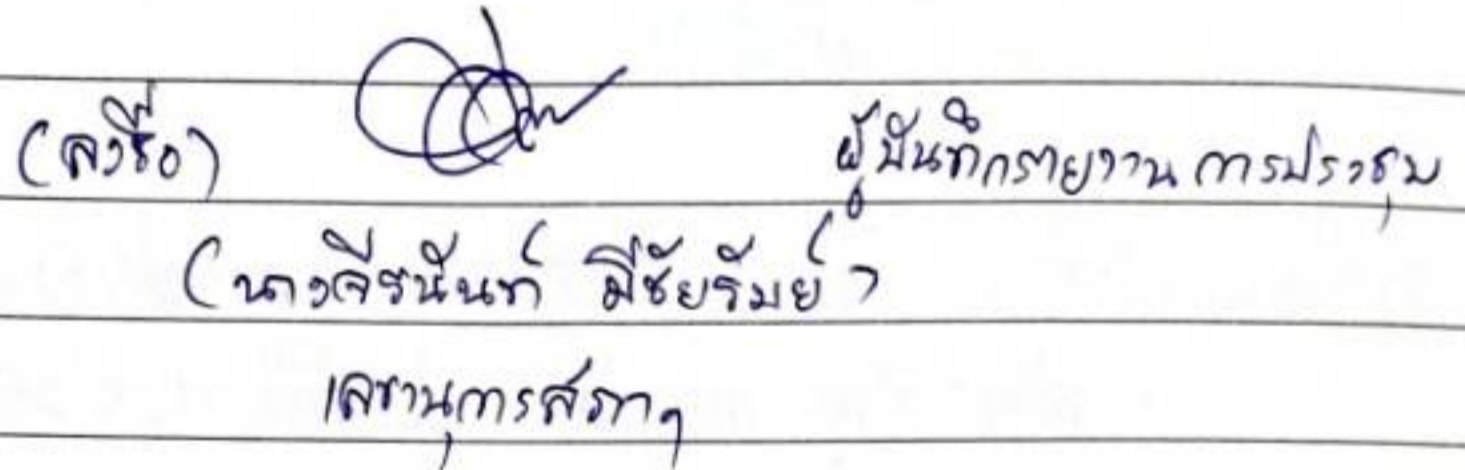 (ลงชื่อ) ผู้บันทึกรายงานการประชุม
(นางจีรนันท์ มีชัยรัมย์)
เลขานุการสภาฯ